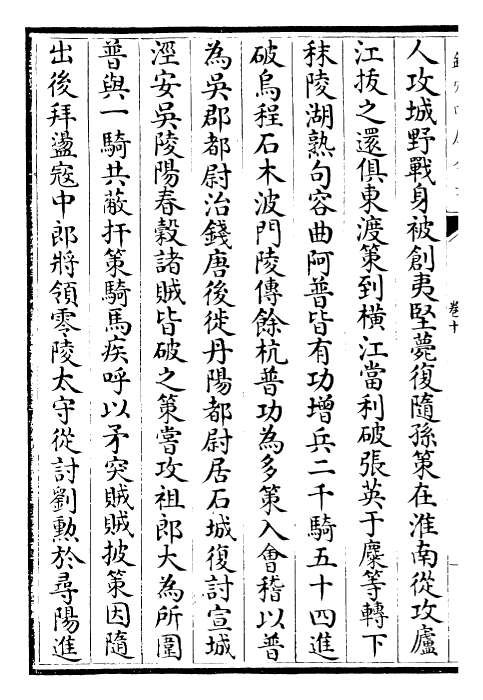 人攻城野戰身被創夷堅薨復隨孫策在淮南從攻廬
江拔之還俱東渡策到橫江當利破張英于麋等轉下
秣陵湖熟句容曲阿普皆有功增兵二千騎五十四進
破烏程石木波門陵傳餘杭普功為多策入會稽以普
為吳郡都尉治錢唐後徙丹陽都尉居石城復討宣城
涇安吳陵陽春穀諸賊皆破之策嘗攻祖郎大為所圍
普與一騎共蔽扞策騎馬疾呼以矛突賊賊披策因隨
出後拜盪寇中郎將領零陵太守從討劉勳於尋陽進
卷十